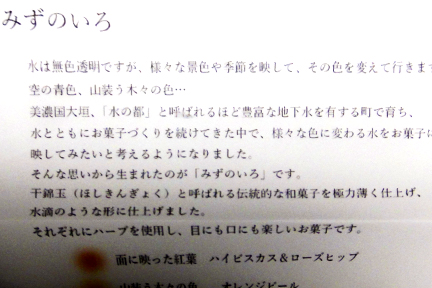 みずのいろ
水は無色透明ですが、様々な景色や季節を映して、その色を変えて行きます
空の青色、山装う木々の色…
美濃国大垣、「水の都」と呼ばれるほど豊富な地下水を有する町で育ち、
水とともにお菓子づくりを続けてきた中で、様々な色に変わる水をお菓子に
映してみたいと考えるようになりました。
そんな思いから生まれたのが「みずのいろ」です。
干錦玉（ほしきんぎょく）と呼ばれる伝統的な和菓子を極力薄く仕上げ、
水滴のような形に仕上げました。
それぞれにハーブを使用し、目にも口にも楽しいお菓子です。
面に映った紅葉　ハイビスカス＆ローズヒップ
山装う木々の色　オレンジピール